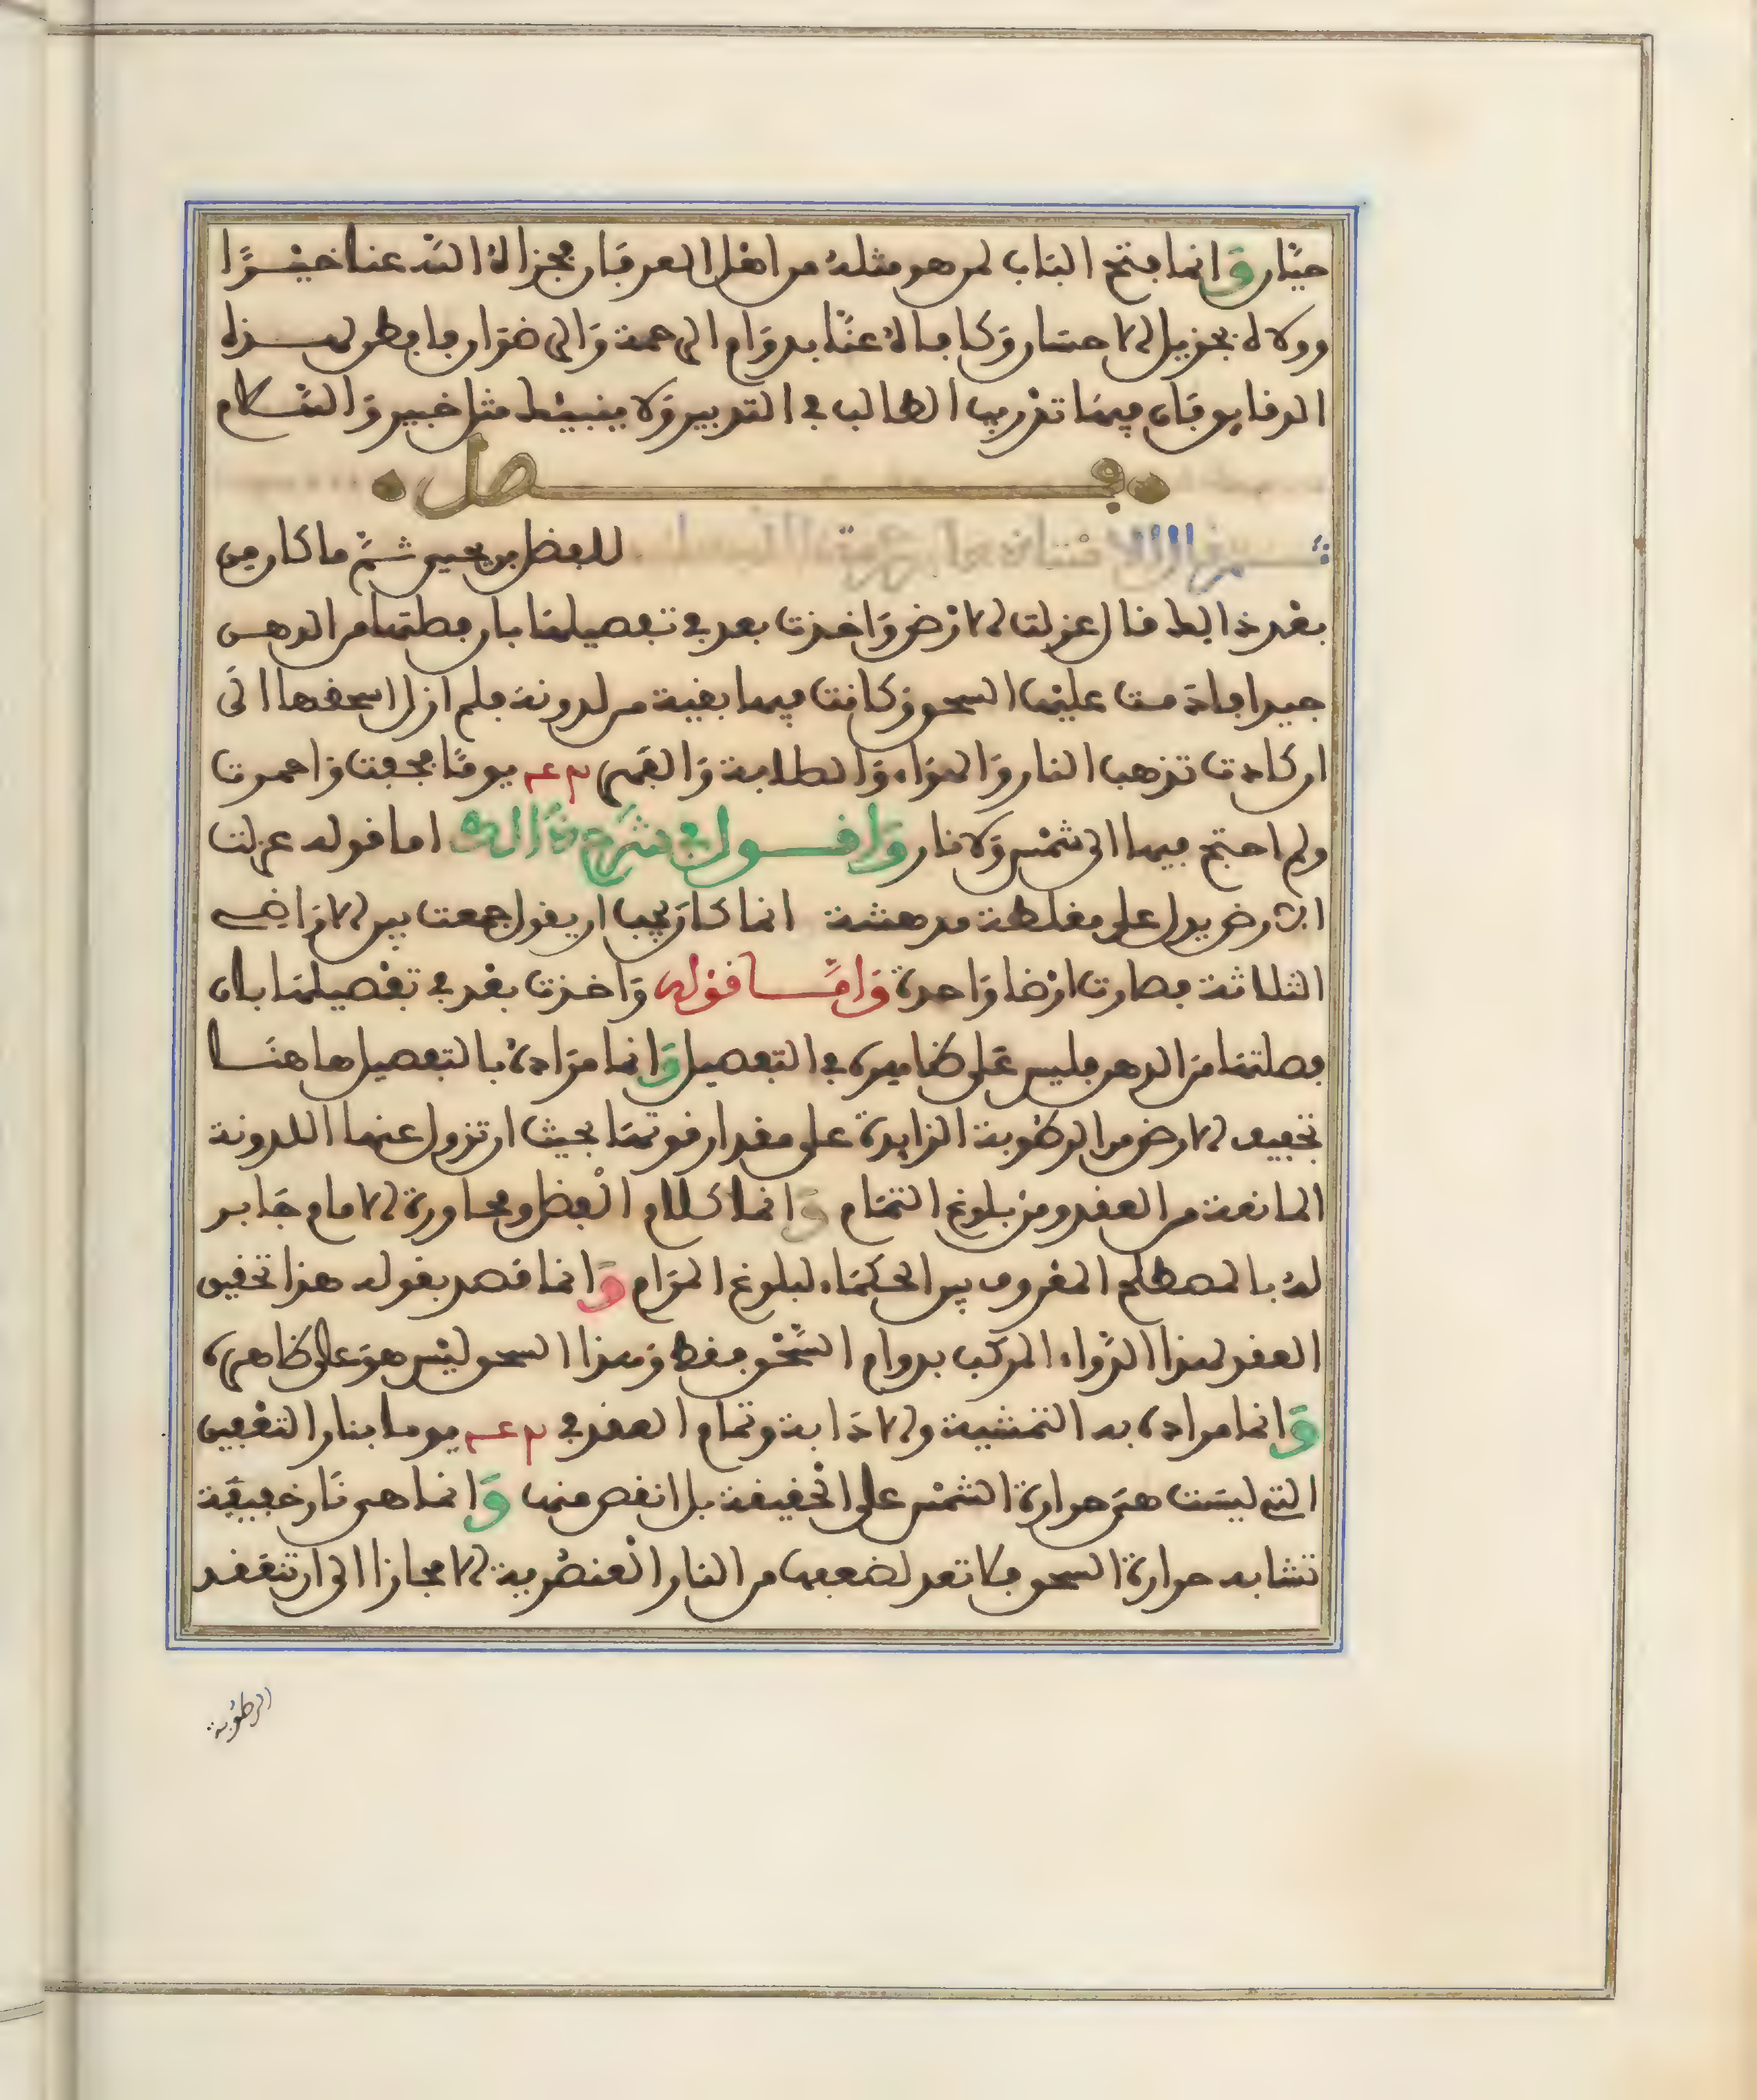 حيّان وَانما فتح البَاب لمن هو مثله من اهْل العرفَان فجزاهُ اللّه عنا خيْـرًا
وولاه بجزيل الاحسَان وَكافاهُ عنّا بدوَام الرحمة وَالرضوَان فافطن لهـذه
الدقايق فَان فيهَا تذريب الطالب في التدبير وَلا ينبيْك مثل خبير وَالسّلام
فـصل
ثم للفضل بن يحيى ثمّ ما كان من
بعْد ذالك قال عزلت الارْض وَاخذت بعد في تفصيلهَا بان فصلتهَا من الدهن
جيدا فادمت عليْهَا السحق وَكانت فيها بقية من لدونة فلم ازل اسحقها الَى
ان كادت تذهب النار وَالهوَاء وَالصلاية وَالفهر يومًا فجفت وَاحمرت
ولم احتج فيها الى شمْس وَلا نار وَاقـول في شرح ذَالك اما قوله عزلت
الارض يدل على مغلطة مدهشة انما كان يَجب ان يقول جمعت بين الارَاضي
الثلاثة فصارت ارْضا وَاحدة وَامَّـا قوْله وَاخذت بعْد في تفْصيلهَا بان
فصلتهَا منَ الدهن فليس عَلى ظاهره في التفصيل وَانما مرَاده بالتفصيل هاهنَـا
تجفيف الارض من الرطوبة الزايدة على مقدار قوتهَا بحيث ان تزول عنها اللدونة
المانعة من العقد ومن بلوغ التمَام وَانما كلام الْفضل ومحاورة الامام جَابر
لهُ بالمصطلح المعْروف بين الحكمَاء لبلوغ المرَام وَانما قصد بقوله هذا تحقيق
العقد لهذا الدّواء المرَكب بدوام السَّحْق فقط وَهذا السحق ليْس هوَ على ظاهره
وَانما مراده به التمشية والاذابة وتمام العقد في يوما بنار التعْفين
التي ليسَت هيَ حرارة الشمْس على الحْقيقة بل انقص منها وَانما هي نَار خفيفَة
تشابه حرارة السحق فلا تعد لضعفها من النار الْعنصُرية الا مجازا الى ان تنعَقد
الرطُوبة